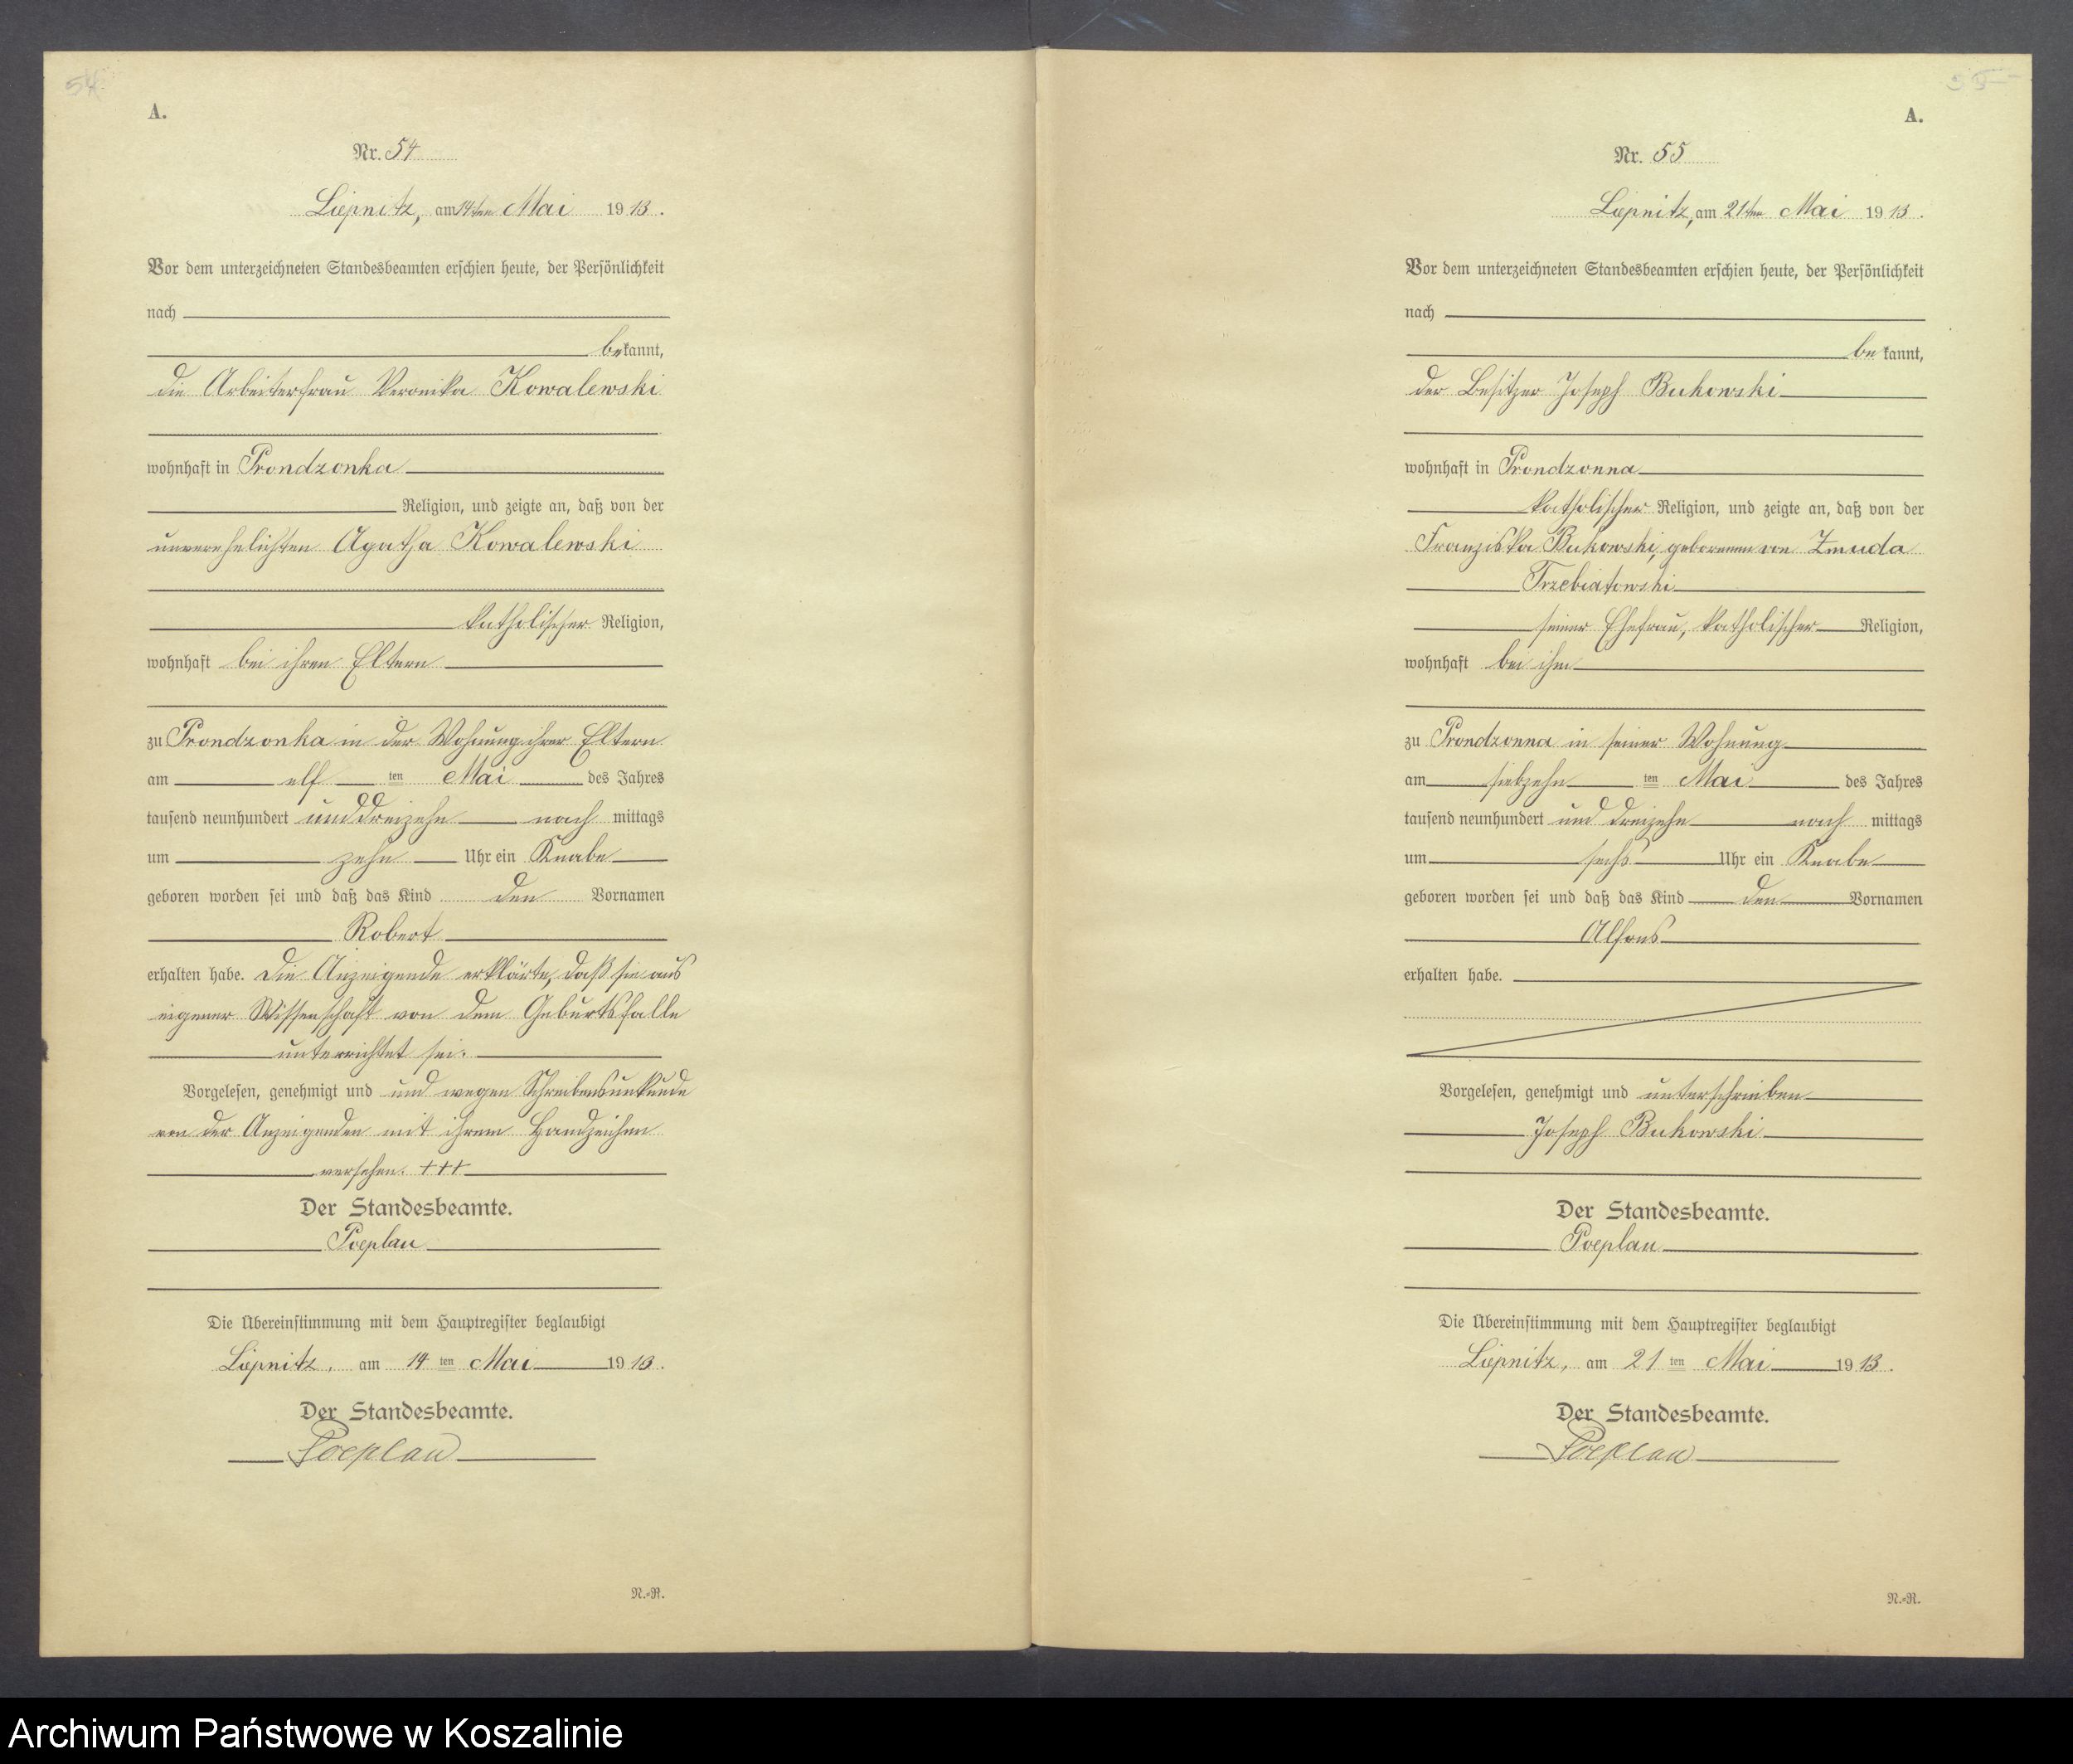 54
A.
Nr. 54
Liepnitz, am 14ten Mai 1913.
Vor dem unterzeichneten Standesbeamten erschien heute, der Persönlichkeit
nach
bekannt,
die Arbeiterfrau Veronika Kowalewski
wohnhaft in Prondzonka
Religion, und zeigte an, daß von der
unverehelichten Agatha Kowalewski
katholischer Religion,
wohnhaft bei ihren Eltern
zu Prondzonka in der Wohnung ihrer Eltern
am elf ten Mai des Jahres
tausend neunhundert und dreizehn nach mittags
um zehn Uhr ein Knabe
geboren worden sei und daß das Kind den Vornamen
Robert
erhalten habe. Die Anzeigende erklärte, daß sie aus
eigener Wissenschaft von dem Geburtsfalle
unterrichtet sei.
Vorgelesen, genehmigt und und wegen Schreibensunkunde
von der Anzeigenden mit ihrem Handzeichen
versehen. +++
Der Standesbeamte.
Poeplau
Die Übereinstimmung mit dem Hauptregister beglaubigt
Liepnitz, am 14 ten Mai 1913.
Der Standesbeamte.
Poeplau
N.-R.
55
A.
Nr. 55
Liepnitz, am 21ten Mai 1913.
Vor dem unterzeichneten Standesbeamten erschien heute, der Persönlichkeit
nach
be kannt,
der Besitzer Joseph Bukowski
wohnhaft in Prondzonna
katholischer Religion, und zeigte an, daß von der
Franziska Bukowski, geborenen von Zmuda
Trzebiatowski
seiner Ehefrau, katholischer Religion,
wohnhaft bei ihm
zu Prondzonna in seiner Wohnung
am siebzehn ten Mai des Jahres
tausend neunhundert und dreizehn nach mittags
um sechs Uhr ein Knabe
geboren worden sei und daß das Kind den Vornamen
Alfons
erhalten habe.
Vorgelesen, genehmigt und unterschrieben
Joseph Bukowski
Der Standesbeamte.
Poeplau
Die Übereinstimmung mit dem Hauptregister beglaubigt
Liepnitz, am 21 ten Mai 1913.
Der Standesbeamte.
Poeplau
N.-R.
Archiwum Państwowe w Koszalinie